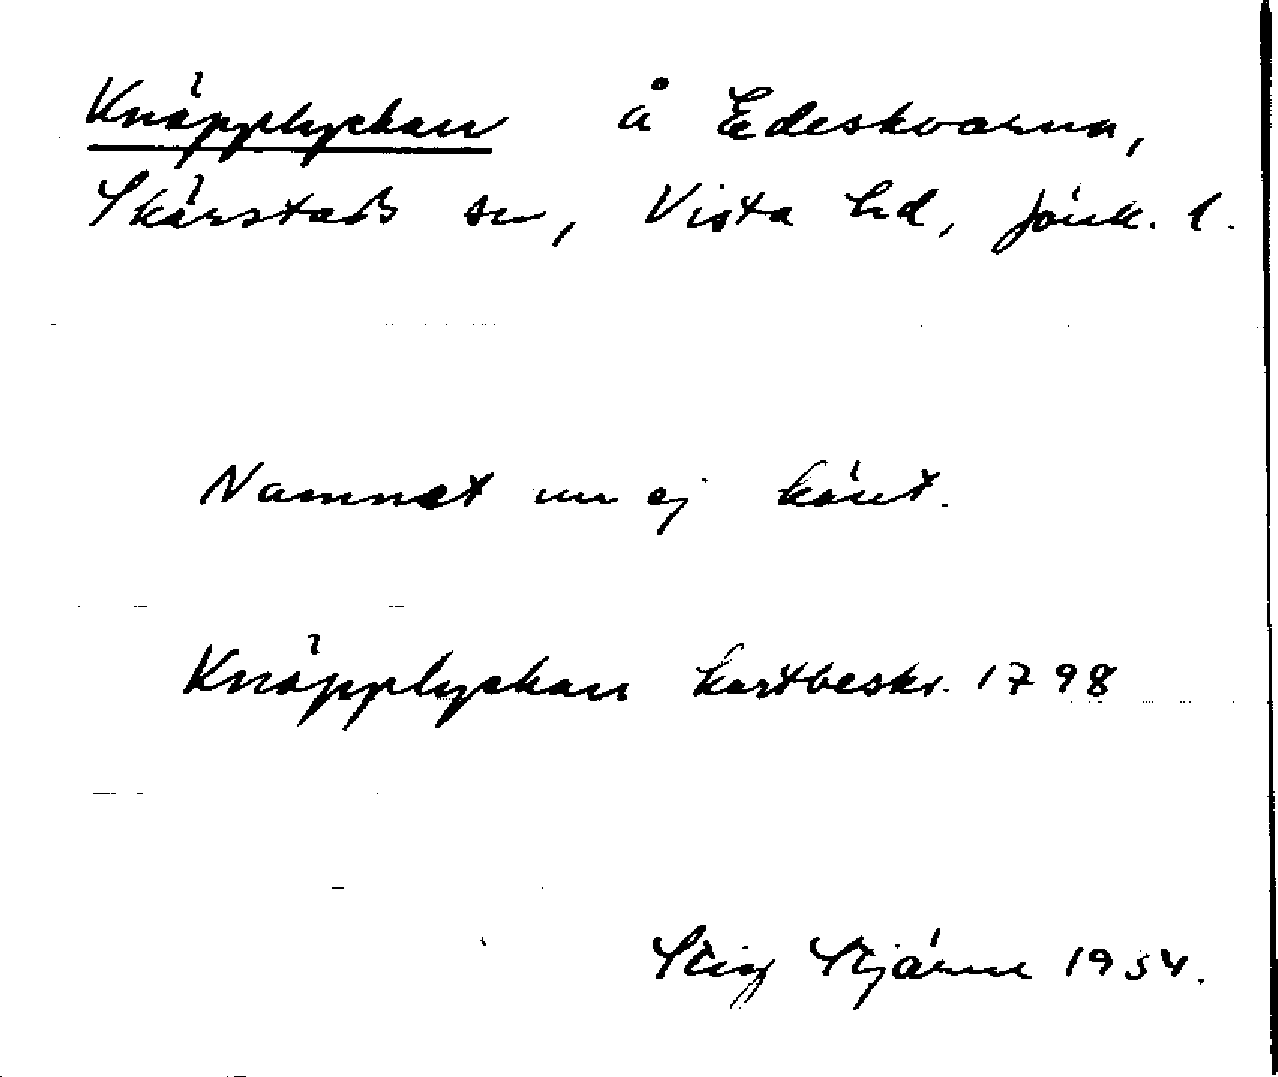 Knäpplyckan å Edeskvarna,
Skärstads sn, Vista hd, Jönk. l.
Namnet nu ej känt.
Knäpplyckan kartbeskr. 1798
Stig Stjärne 1954.